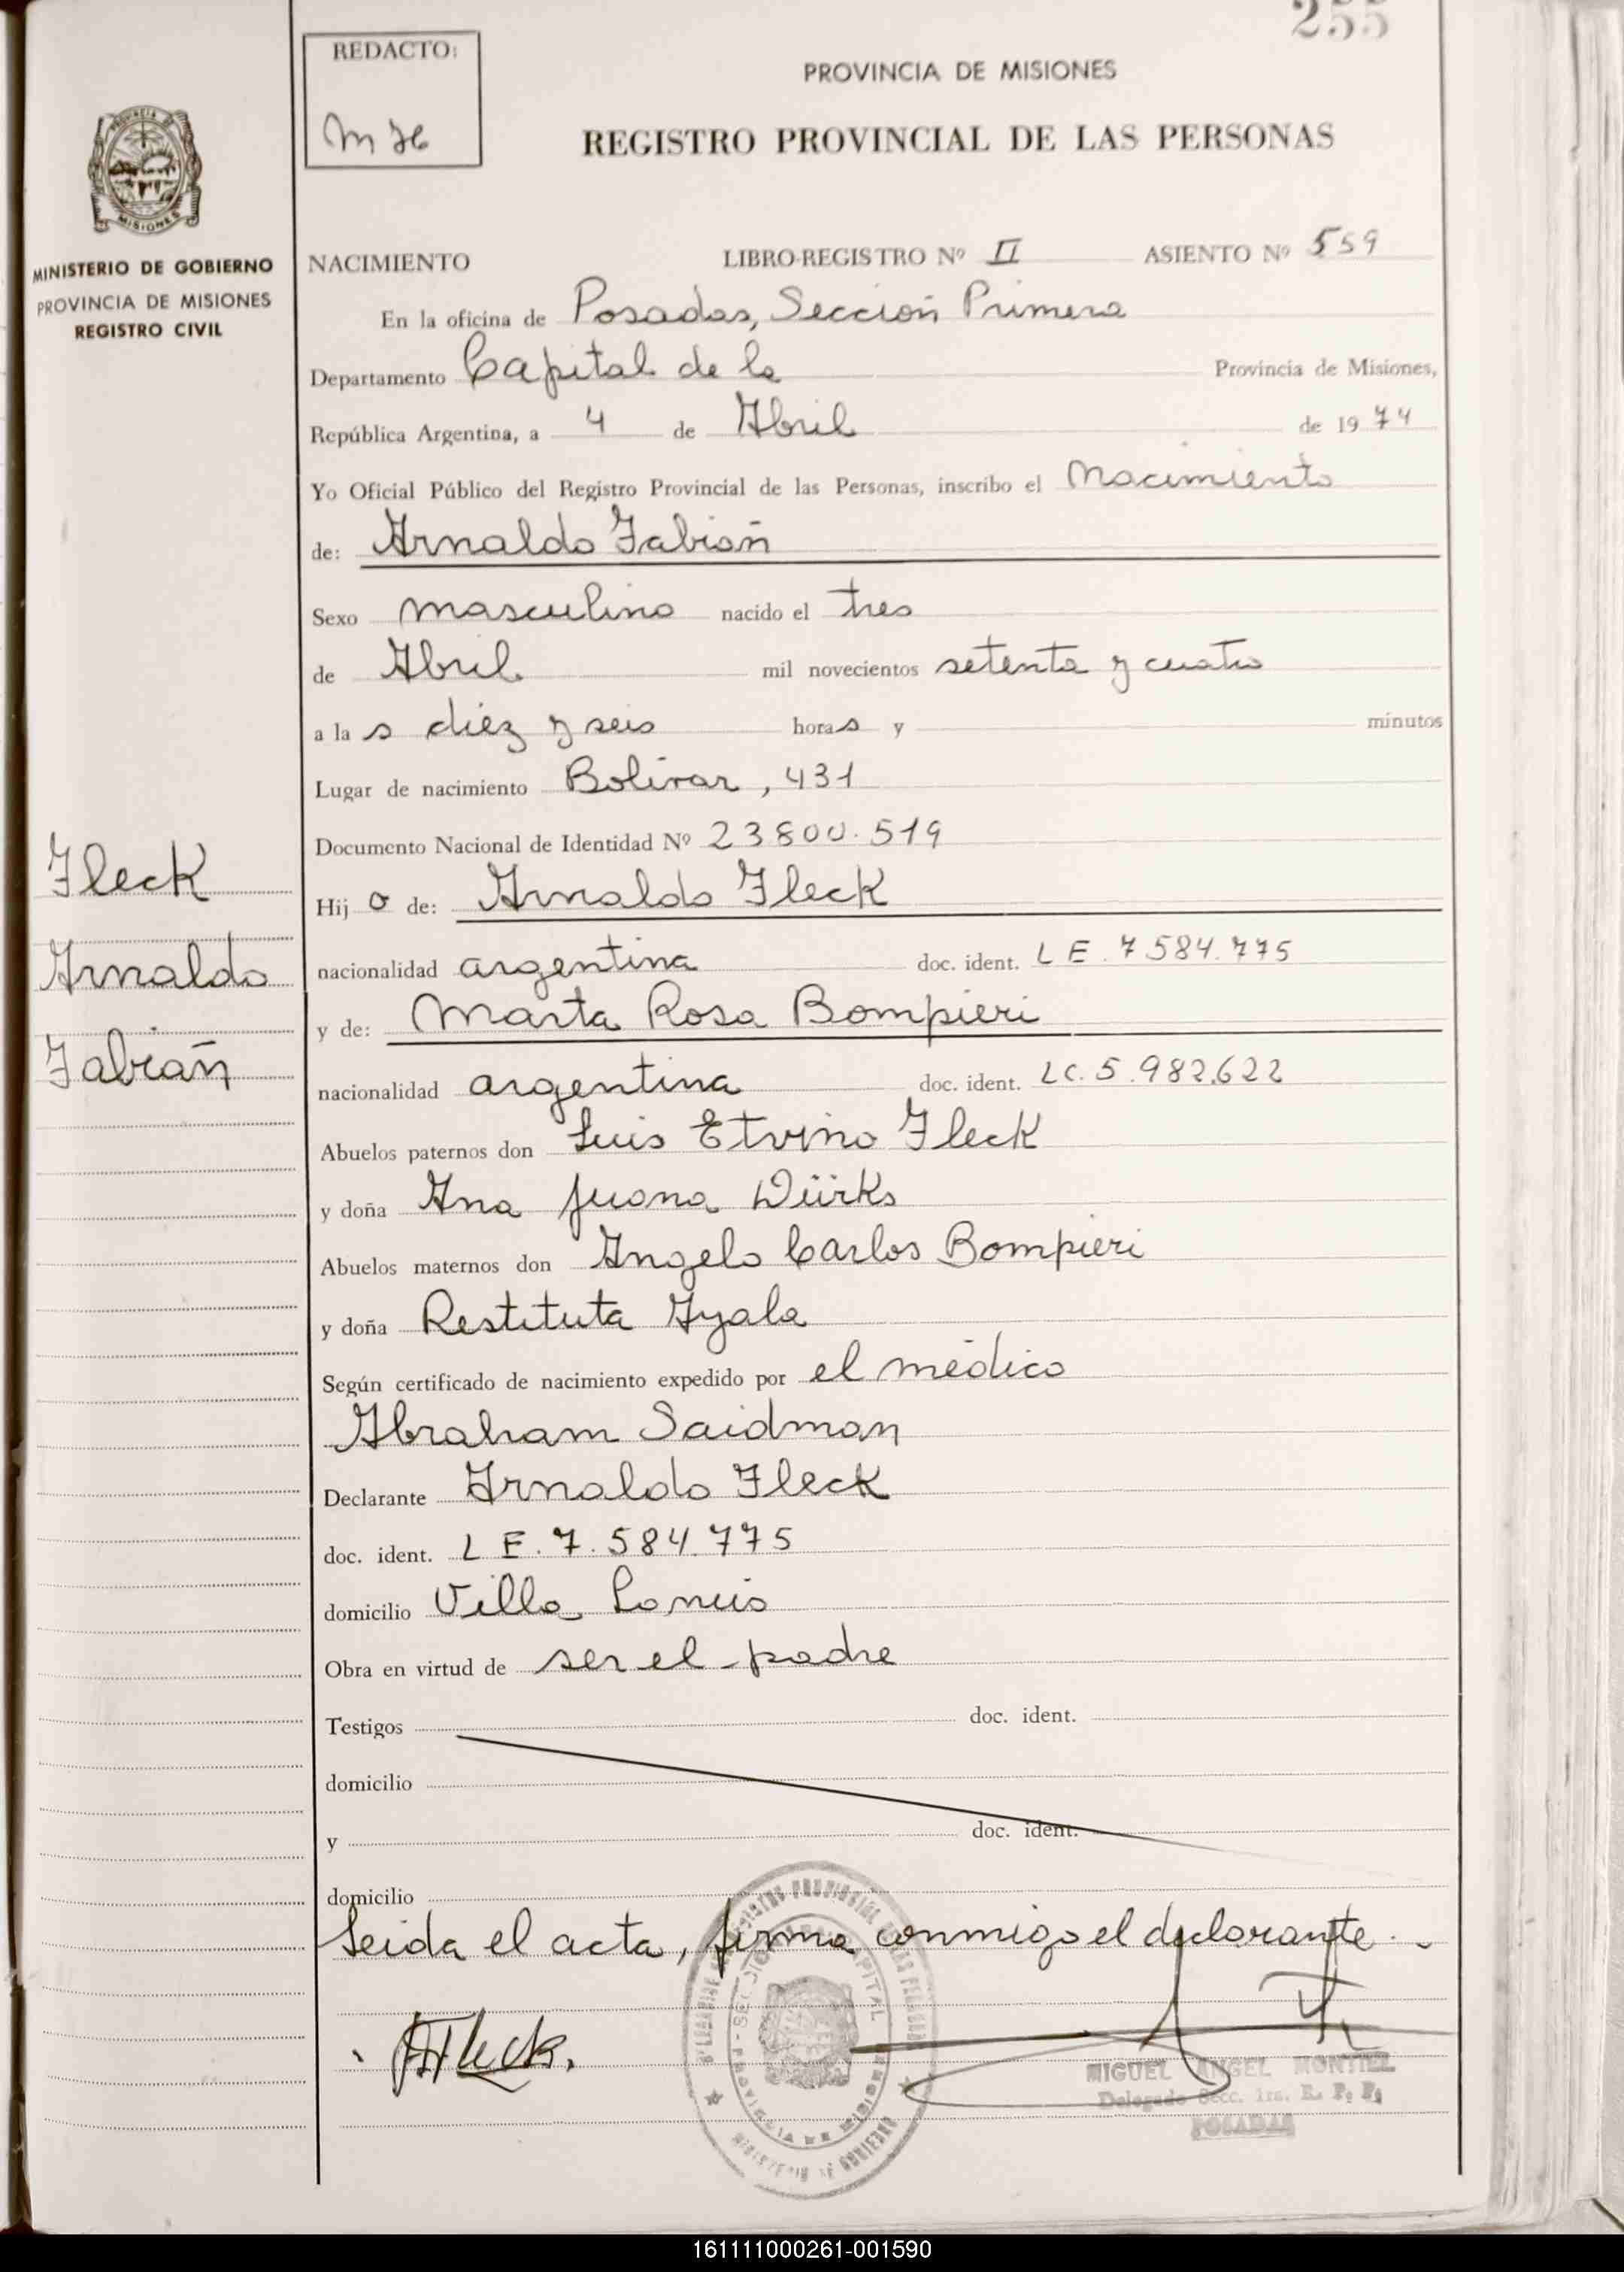 255
REDACTO:
PROVINCIA DE MISIONES
REGISTRO PROVINCIAL DE LAS PERSONAS
MISIONES
MINISTERIO DE GOBIERNO
PROVINCIA DE MISIONES
REGISTRO CIVIL
NACIMIENTO LIBRO-REGISTRO Nº II ASIENTO Nº 559
En la oficina de Posadas, Sección Primera
Departamento Capital de la Provincia de Misiones,
República Argentina, a 4 de Abril de 1974
Yo Oficial Público del Registro Provincial de las Personas, inscribo el Nacimiento
de: Arnaldo Fabián
Sexo masculino nacido el tres
de Abril mil novecientos setenta y cuatro
a la s diez y seis horas y minutos
Lugar de nacimiento Bolivar, 431
Documento Nacional de Identidad Nº 23800.519
Hijo de: Arnaldo Fleck
nacionalidad argentina doc. ident. LE. 7.584.775
y de: Marta Rosa Bompieri
nacionalidad argentina doc. ident. LC. 5.982.622
Abuelos paternos don Luis Etvino Fleck
y doña Ana Juana Dürks
Abuelos maternos don Angelo Carlos Bompieri
y doña Restituta Ayala
Según certificado de nacimiento expedido por el médico
Abraham Saidman
Declarante Arnaldo Fleck
doc. ident. LE. 7.584.775
domicilio Villa Lanús
Obra en virtud de ser el padre
Testigos doc. ident.
domicilio
y doc. ident.
domicilio
Leida el acta, firma conmigo el declarante.
Fleck
Arnaldo
Fabián
AFleck.
MIGUEL ANGEL MONTIEL
Delegado Secc. 1ra. R. P. P.
POSADAS
161111000261-001590